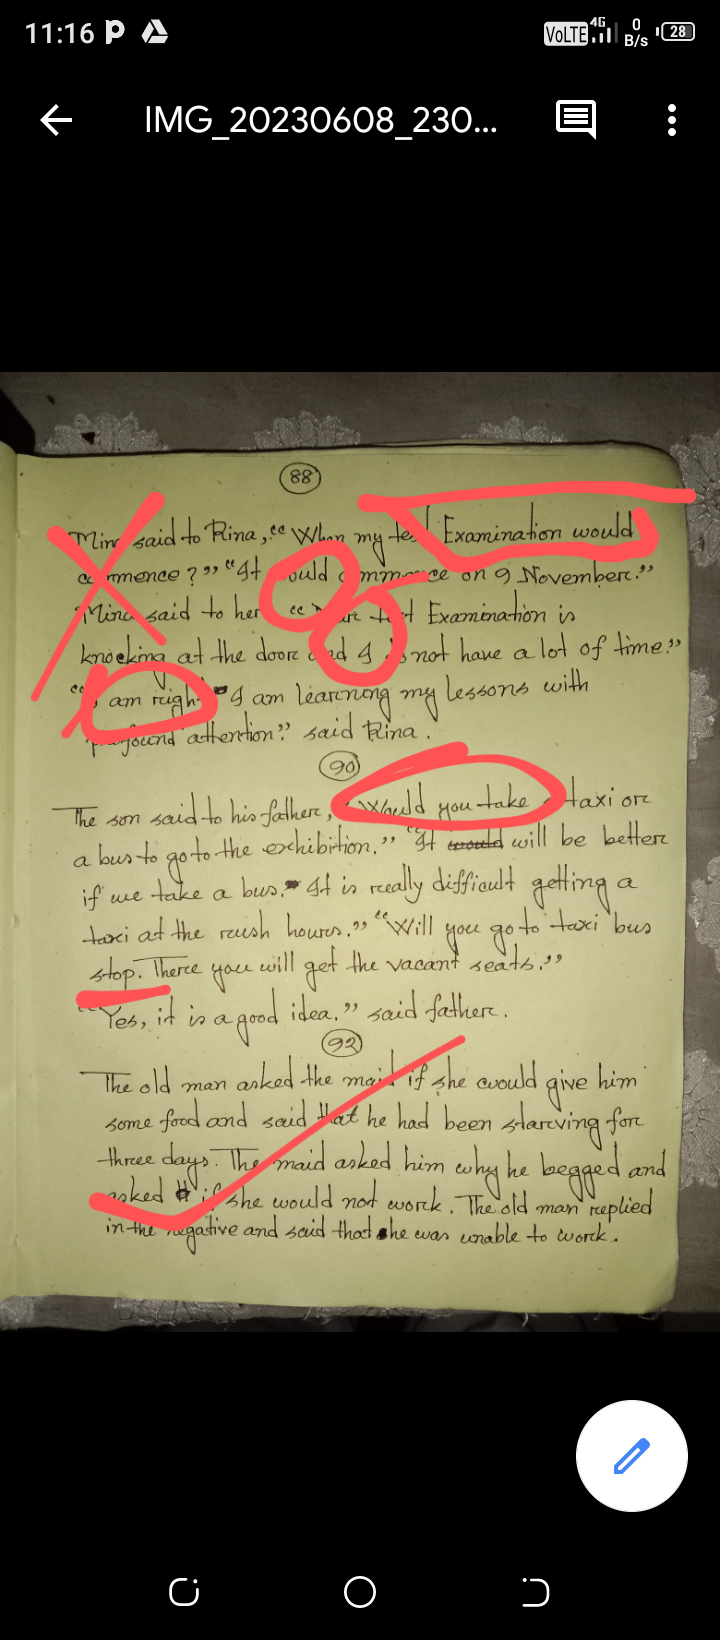 11:16 P
VoLTE 4G 0 B/s 28
IMG_20230608_230...
88
Mina said to Rina, "When my test Examination would
commence?" "It would commence on 9 November."
Mina said to her "Test Examination is
knocking at the door and I do not have a lot of time."
am right I am learning my lessons with
profound attention" said Rina.
90
The son said to his father, "Would you take a taxi or
a bus to go to the exhibition." "It would will be better
if we take a bus. It is really difficult getting a
taxi at the rush hours." "Will you go to taxi bus
stop. There you will get the vacant seats."
"Yes, it is a good idea." said father.
92
The old man asked the maid if she would give him
some food and said that he had been starving for
three days. The maid asked him why he begged and
asked if she would not work. The old man replied
in the negative and said that he was unable to work.